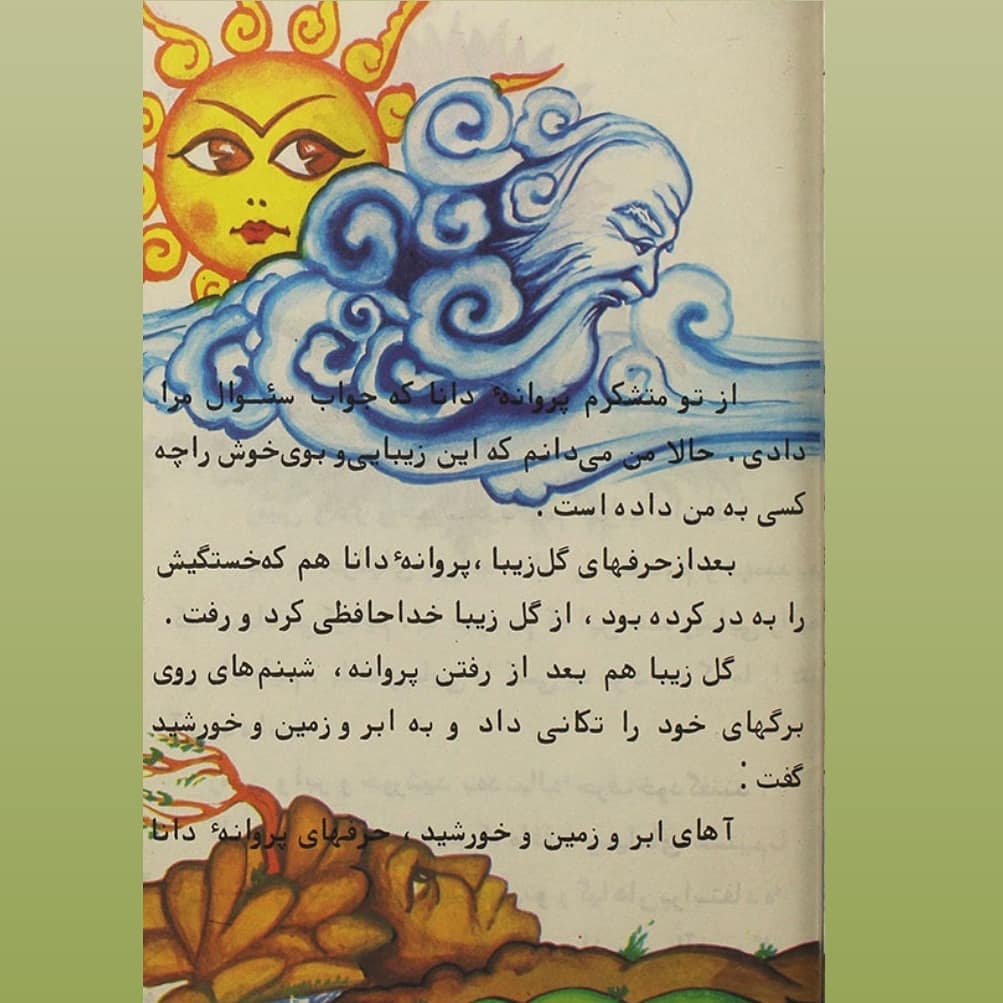 از تو متشکرم پروانهٔ دانا که جواب سئوال مرا
دادی. حالا من می‌دانم که این زیبایی و بوی خوش را چه
کسی به من داده است.
بعد از حرفهای گل زیبا، پروانهٔ دانا هم که خستگیش
را به در کرده بود، از گل زیبا خداحافظی کرد و رفت.
گل زیبا هم بعد از رفتن پروانه، شبنم‌های روی
برگهای خود را تکانی داد و به ابر و زمین و خورشید
گفت:
آهای ابر و زمین و خورشید، حرفهای پروانهٔ دانا